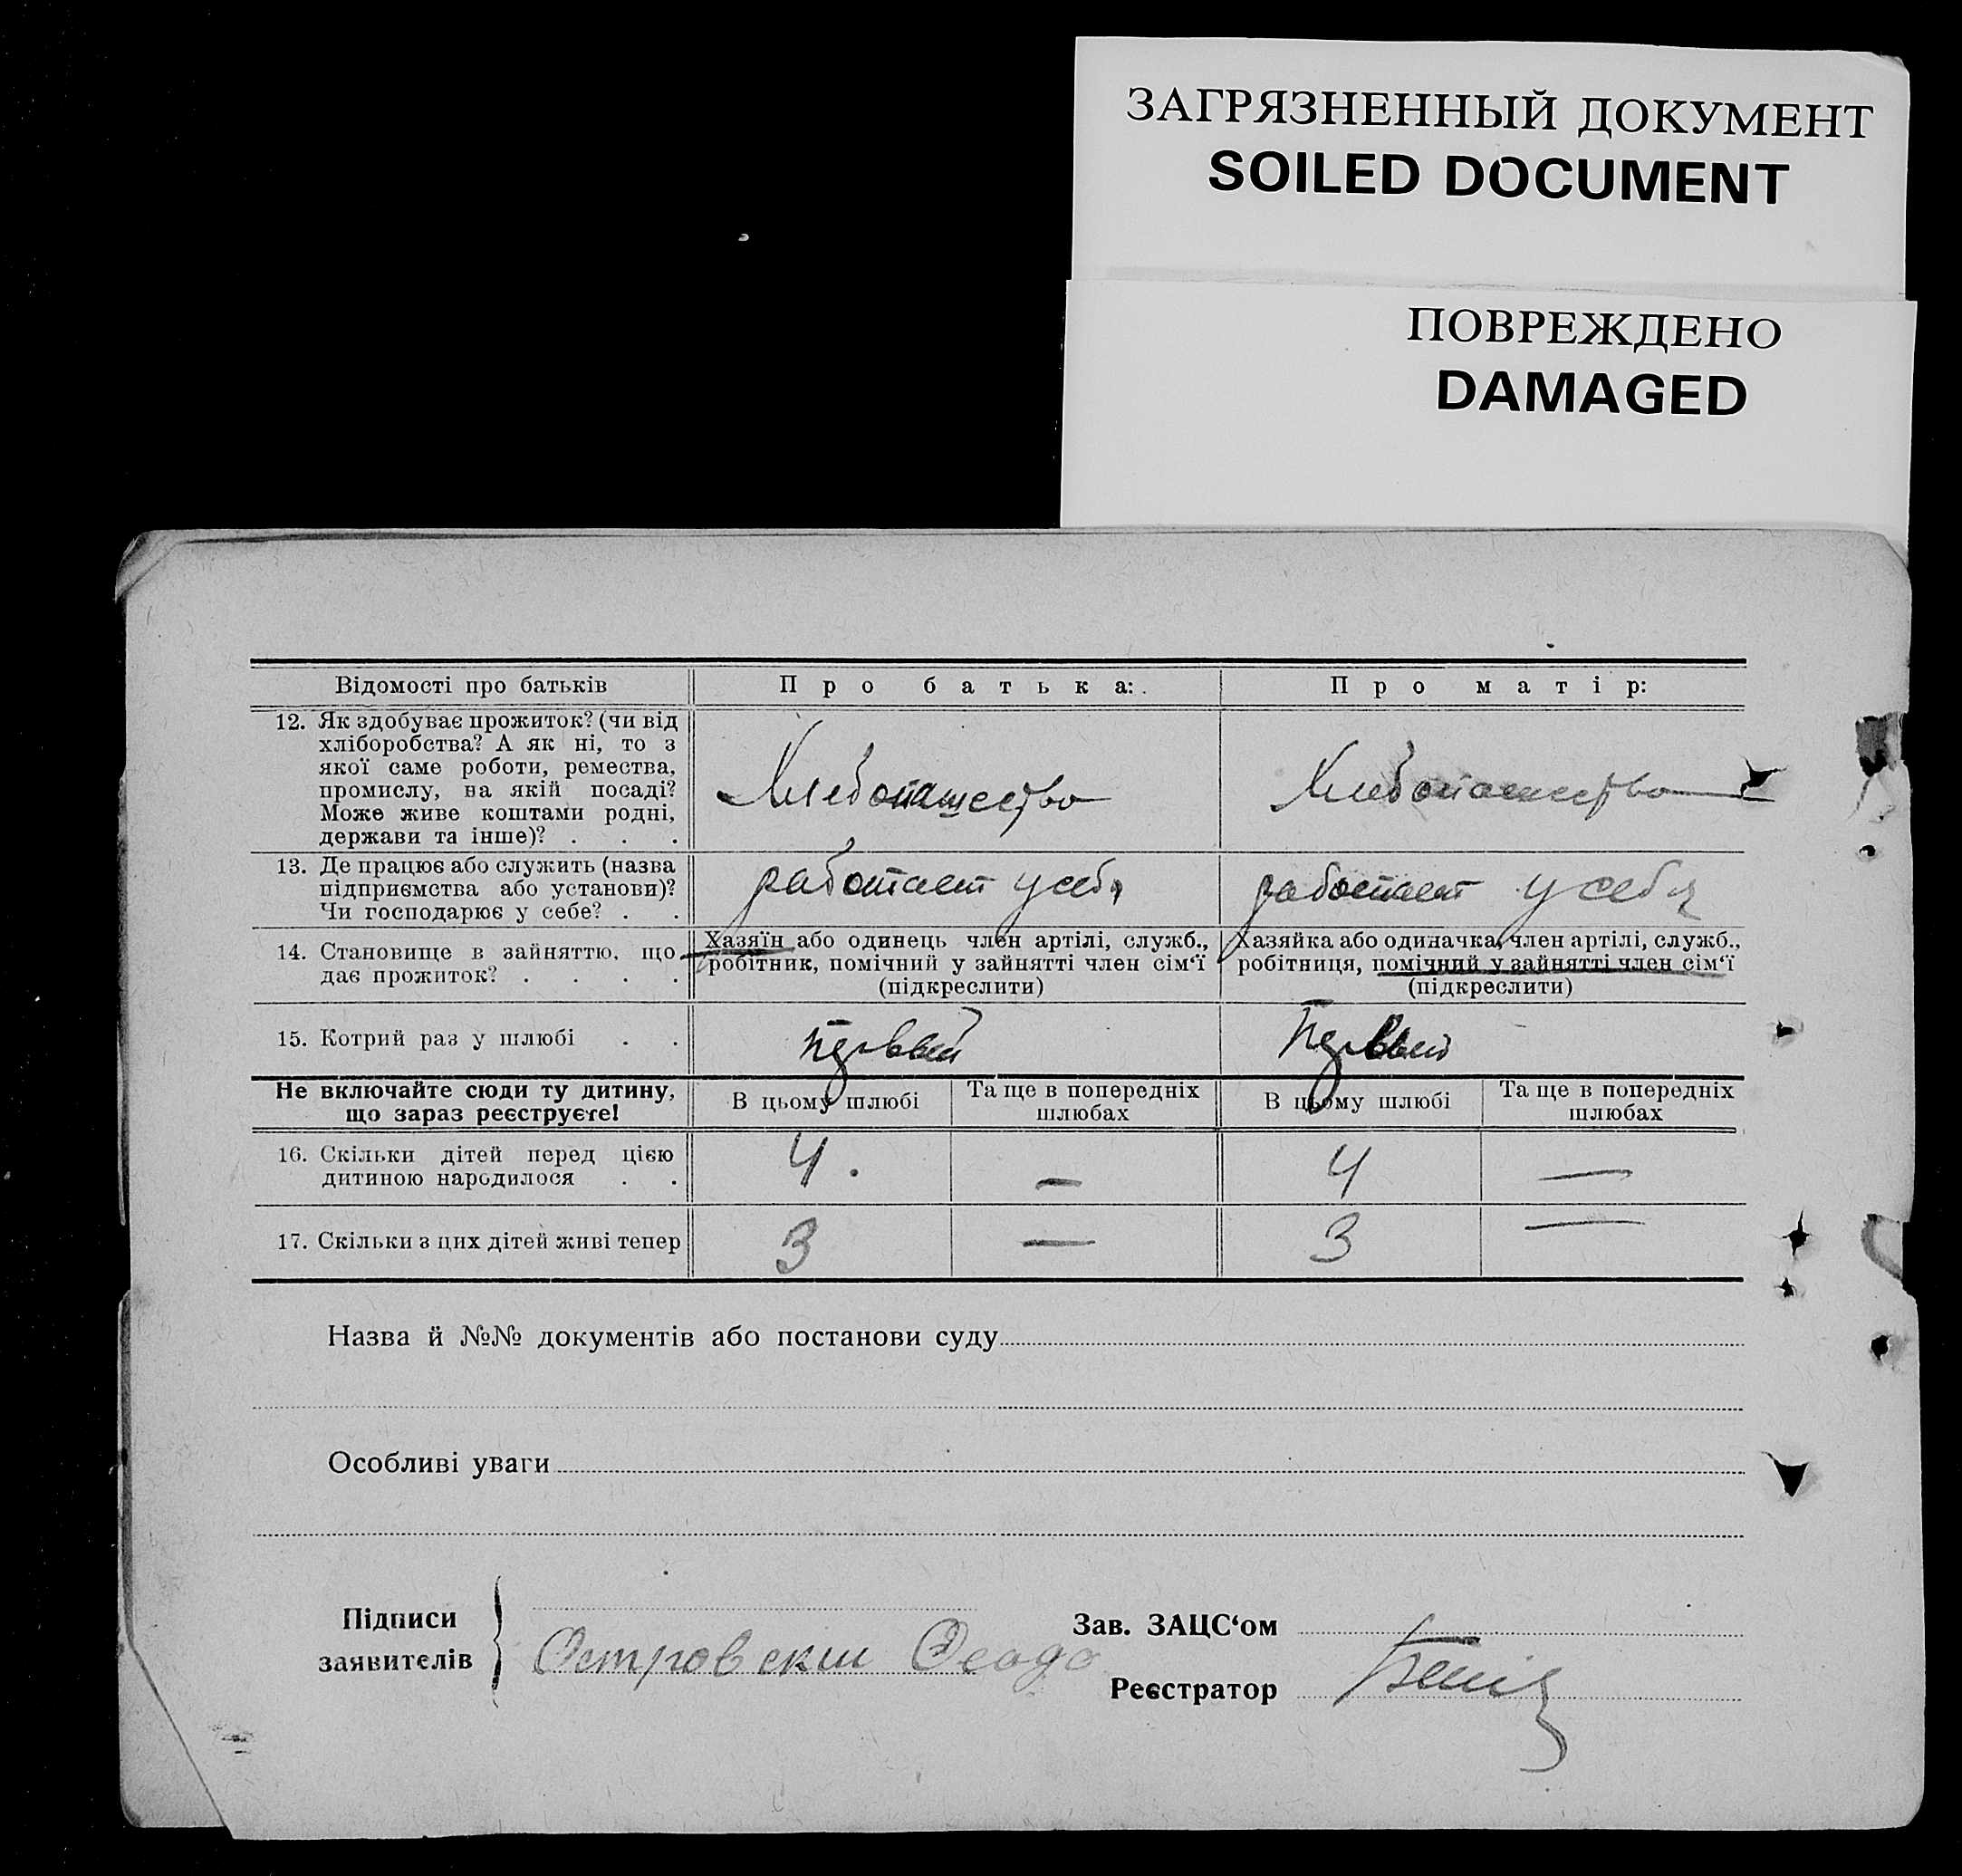 ЗАГРЯЗНЕННЫЙ ДОКУМЕНТ
SOILED DOCUMENT
ПОВРЕЖДЕНО
DAMAGED
Відомості про батьків
Про батька:
Про матір:
12. Як здобуває прожиток? (чи від
хліборобства? А як ні, то з
якої саме роботи, ремества,
промислу, на якій посаді?
Може живе коштами родні,
держави та інше)? . . .
Хлебопашество
Хлебопашество
13. Де працює або служить (назва
підприємства або установи)?
Чи господарює у себе? . .
работает у себя
работает у себя
14. Становище в зайняттю, що
дає прожиток? . . . .
Хазяїн або одинець член артілі, служб.,
робітник, помічний у зайнятті член сім‘ї
(підкреслити)
Хазяйка або одиначка, член артілі, служб.,
робітниця, помічний у зайнятті член сім‘ї
(підкреслити)
15. Котрий раз у шлюбі . .
первый
Первый
Не включайте сюди ту дитину,
що зараз реєструєте!
В цьому шлюбі
Та ще в попередніх
шлюбах
В цьому шлюбі
Та ще в попередніх
шлюбах
16. Скільки дітей перед цією
дитиною народилося . .
4. — 4 —
17. Скільки з цих дітей живі тепер
3 — 3 —
Назва й №№ документів або постанови суду
Особливі уваги
Підписи
заявителів
Островски
Зав. ЗАЦС‘ом
Реєстратор